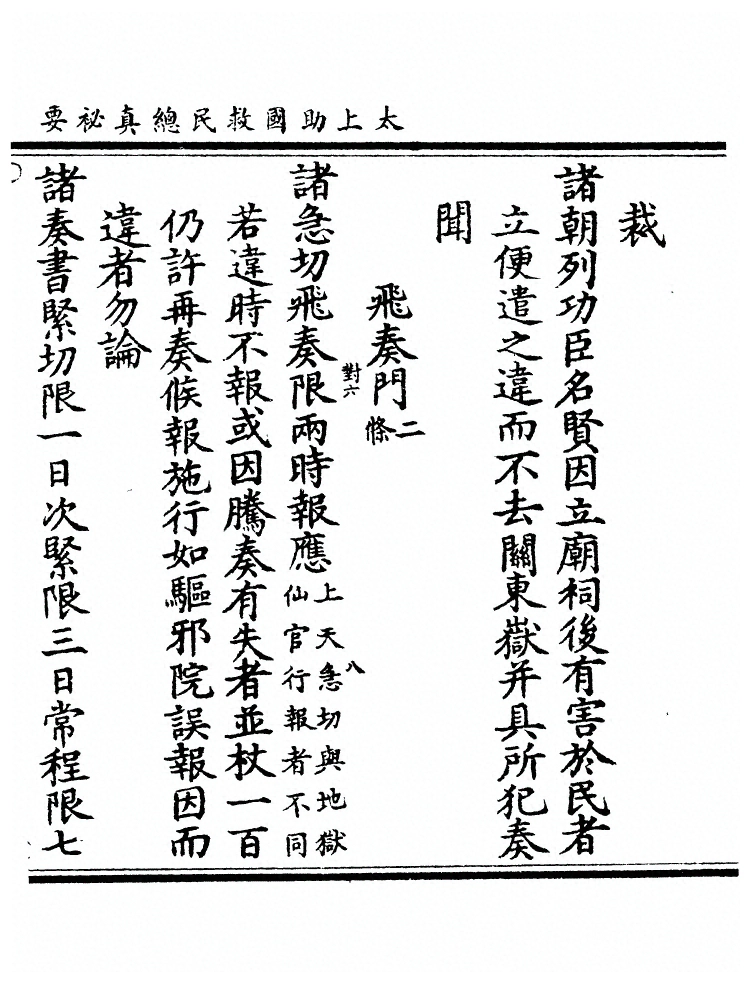 太上助國救民總真祕要
裁
諸朝列功臣名賢因立廟祠後有害於民者
立便遣之違而不去關東嶽并具所犯奏
聞
飛奏門二條
對六
諸急切飛奏限兩時報應上天急切與地獄仙官行報者不同
八
若違時不報或因騰奏有失者並杖一百
仍許再奏候報施行如驅邪院誤報因而
違者勿論
諸奏書緊切限一日次緊限三日常程限七